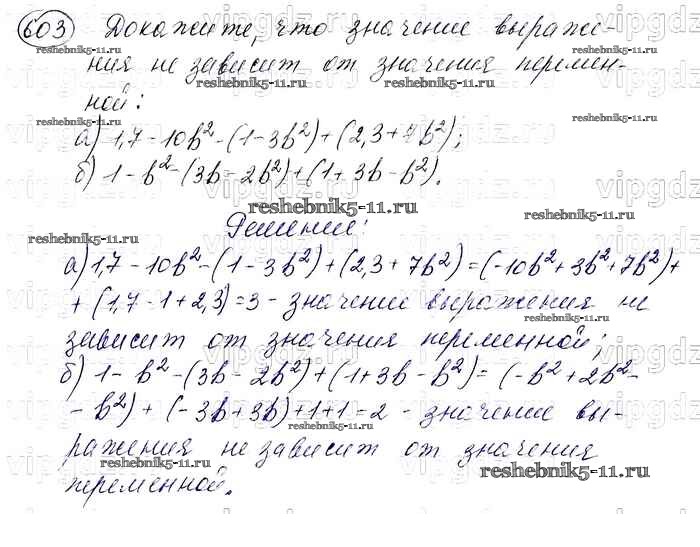 603 Докажите, что значение выраже-
ния не зависит от значения перемен-
ной:
а) 1,7 - 10b² - (1 - 3b²) + (2,3 + 7b²);
б) 1 - b² - (3b - 2b²) + (1 + 3b - b²).
Решение:
а) 1,7 - 10b² - (1 - 3b²) + (2,3 + 7b²) = (-10b² + 3b² + 7b²) +
+ (1,7 - 1 + 2,3) = 3 - значение выражения не
зависит от значения переменной;
б) 1 - b² - (3b - 2b²) + (1 + 3b - b²) = (-b² + 2b² -
- b²) + (-3b + 3b) + 1 + 1 = 2 - значение вы-
ражения не зависит от значения
переменной.
reshebnik5-11.ru
vipgdz.ru